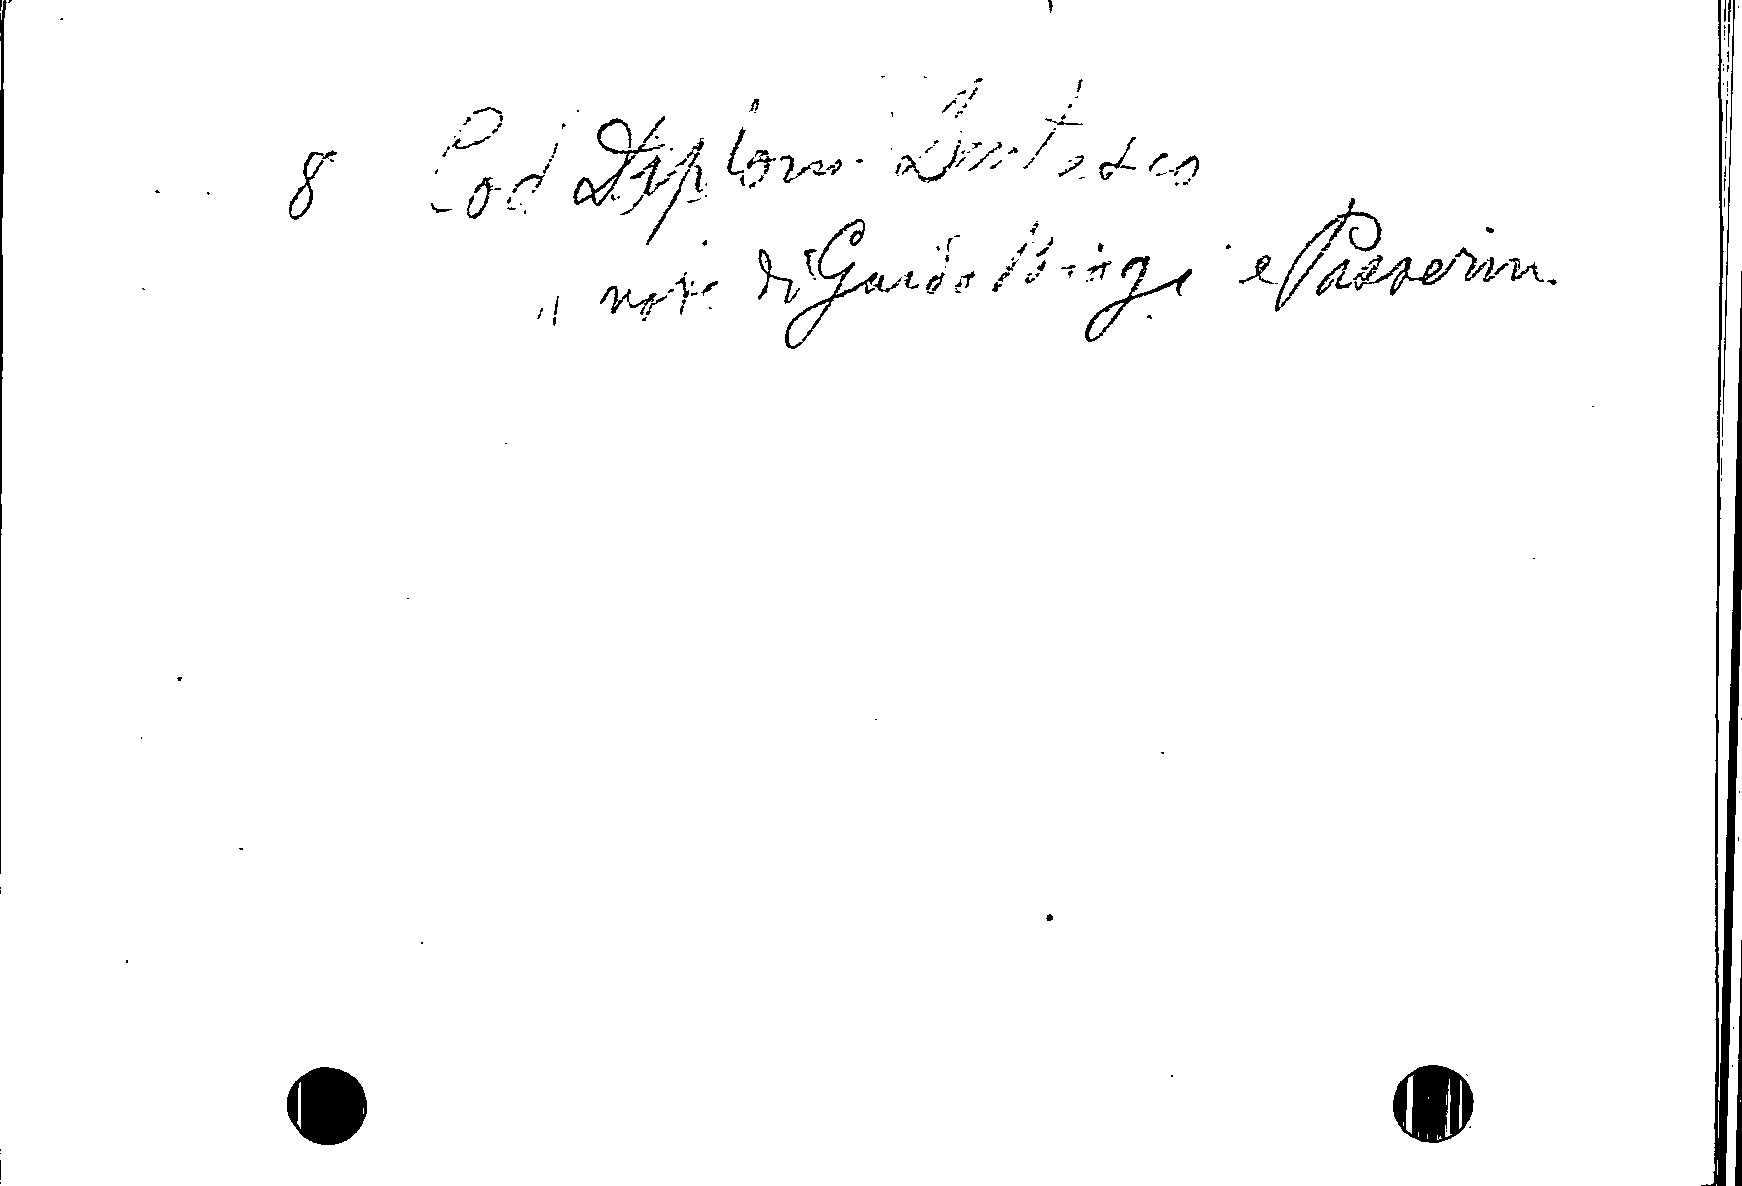 8 Cod Diplom. Dantesco
" note di Guido Biagi e Passerin.